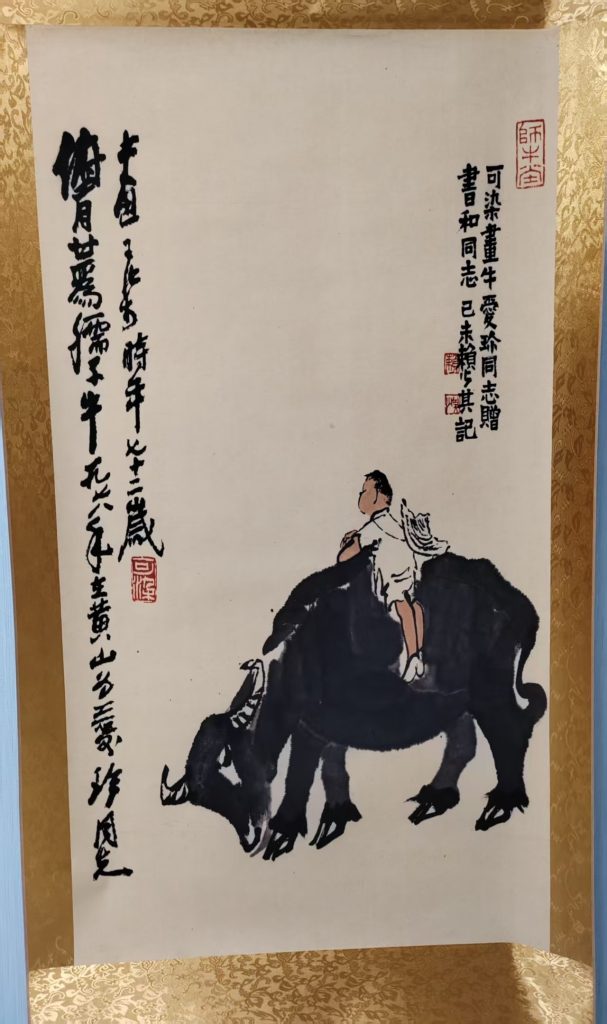 師牛堂
可染畫牛愛玲同志贈
書和同志 己未賴少其記
俯首甘為孺子牛 一九七八年在黃山為愛玲同志
可染 時年七十二歲
可染